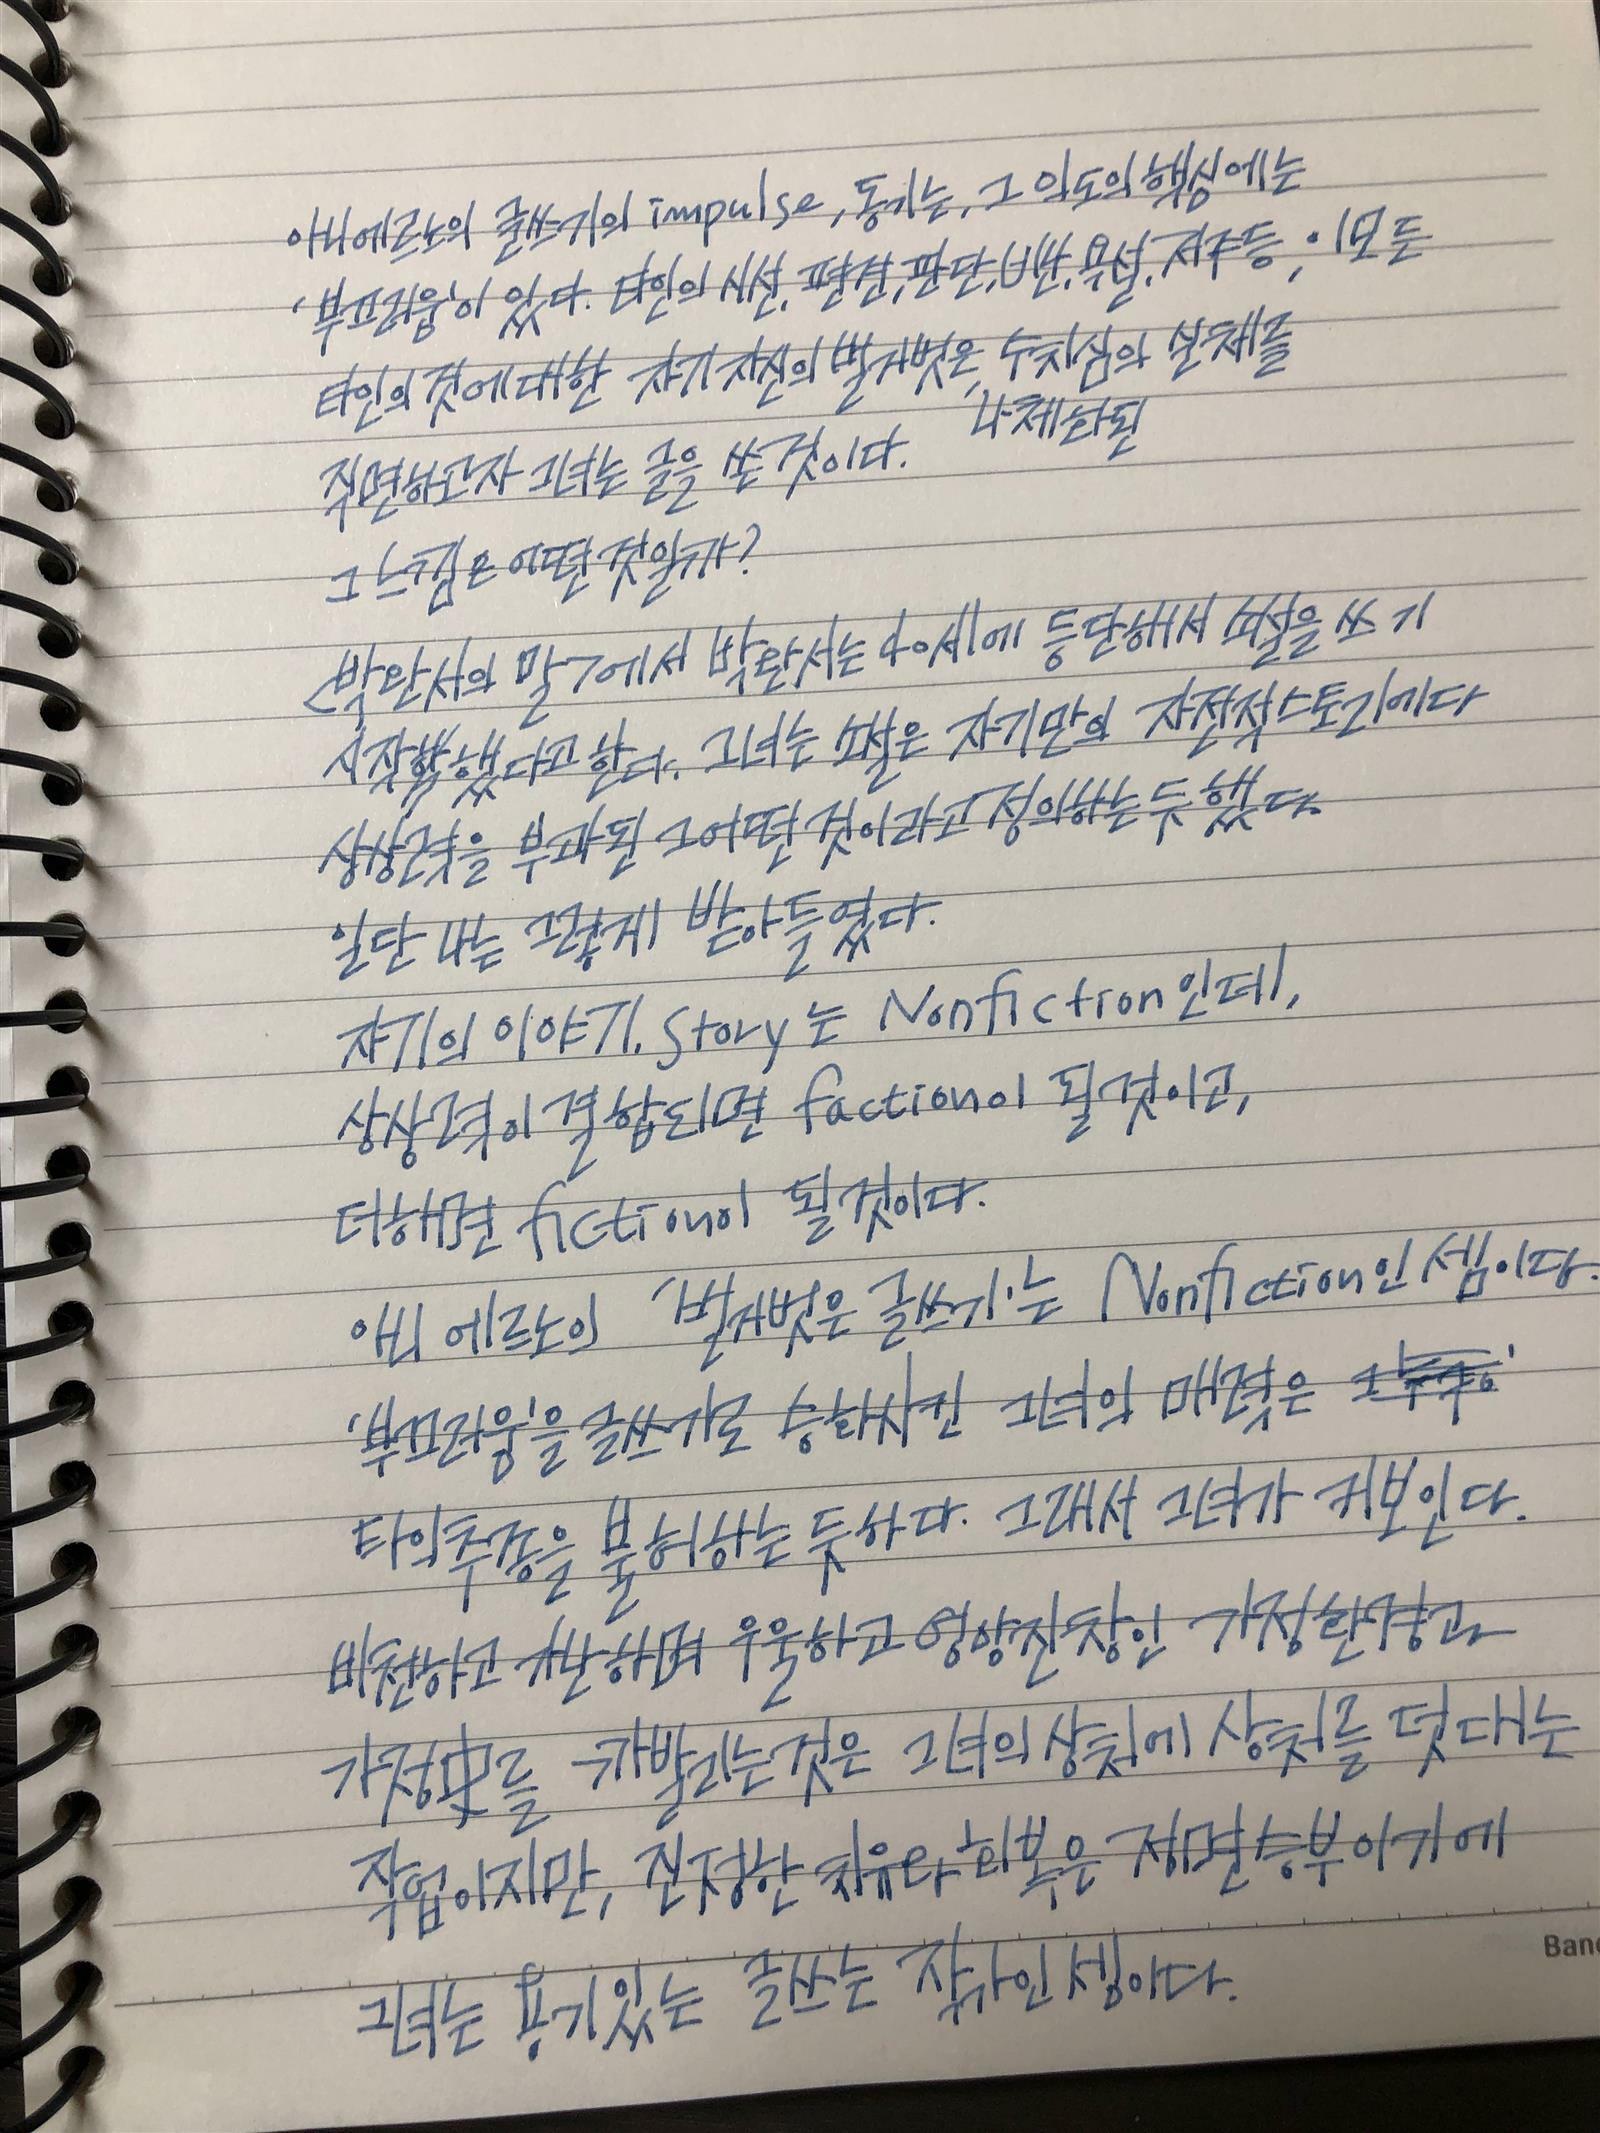 아니에르노의 글쓰기의 impulse, 동기는, 그 의도의 핵심에는
'부끄러움'이 있다. 타인의 시선, 편견, 판단, 비난, 욕설, 저주등, 이모든
타인의 것에 대한 자기자신의 발가벗은, 수치심의 실체를
나체화된
직면하고자 그녀는 글을 쓴 것이다.
그 느낌은 어떤 것일까?
<박완서의 말>에서 박완서는 40세에 등단해서 소설을 쓰기
시작했다고 한다. 그녀는 소설은 자기만의 자전적 스토리에다
상상력을 부과된 그 어떤 것이라고 정의하는 듯 했다.
일단 나는 그렇게 받아들였다.
자기의 이야기. Story는 Nonfiction인데,
상상력이 결합되면 faction이 될 것이고,
더해면 fiction이 될 것이다.
애니 에르노의 '발가벗은 글쓰기'는 Nonfiction인 셈이다.
'부끄러움'을 글쓰기로 승화시킨 그녀의 매력은
타의추종을 불허하는 듯하다. 그래서 그녀가 커보인다.
비천하고 가난하며 우울하고 엉망진창인 가정환경과
가정史를 까발리는것은 그녀의 상처에 상처를 덧대는
작업이지만, 진정한 치유와 회복은 정면승부이기에
그녀는 용기있는 글쓰는 작가인 셈이다.